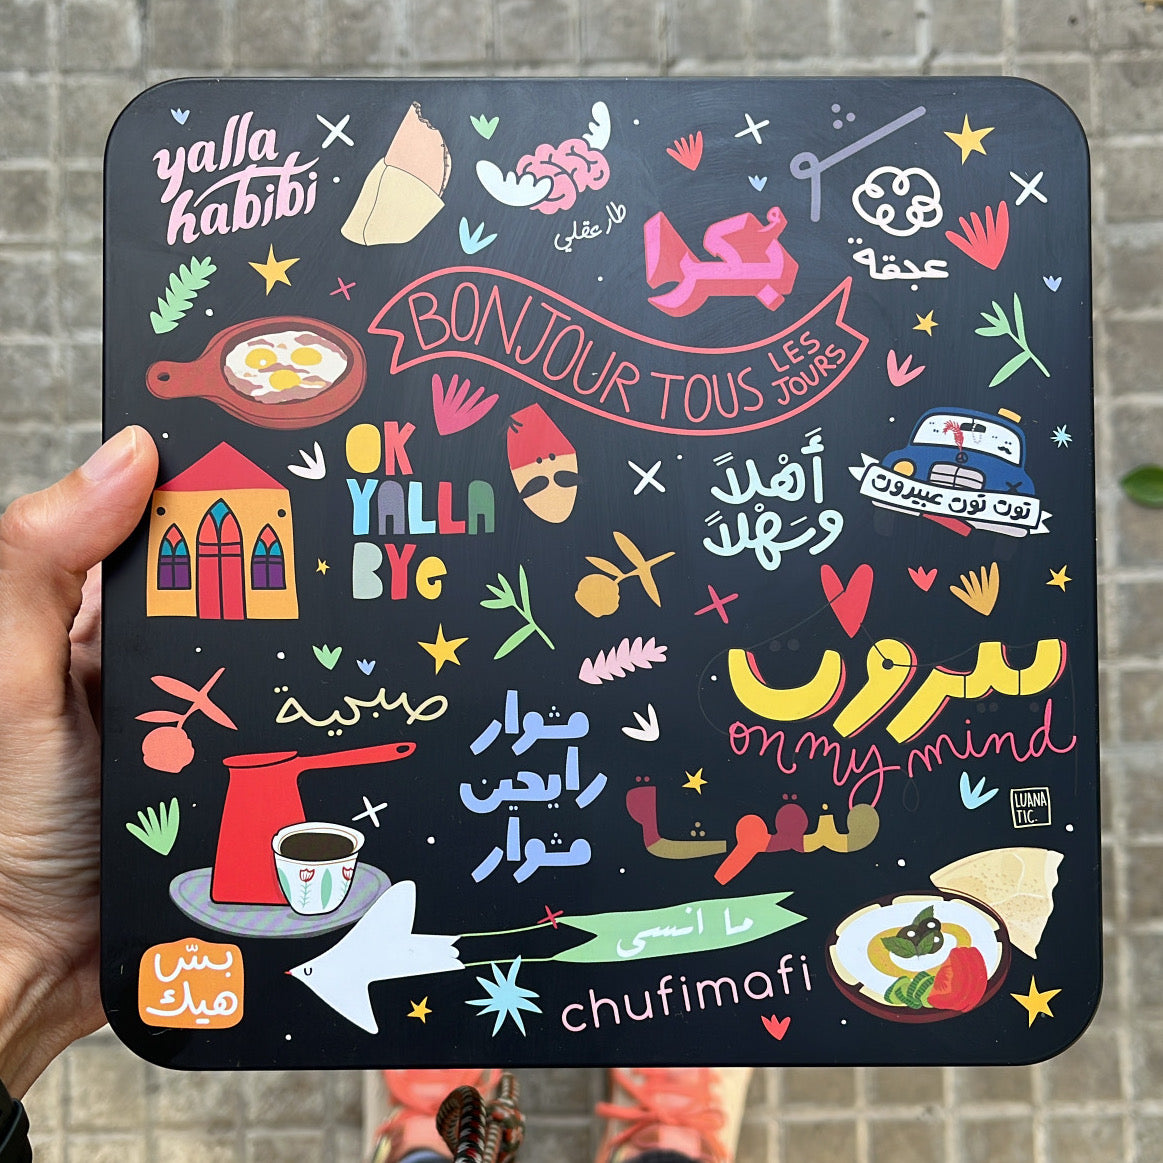 yalla
habibi
طار عقلي
شو
عجقة
بُكرا
BONJOUR TOUS LES
JOURS
OK
YALLA
BYE
أَهْلاً
وسَهْلاً
توت توت عبيروت
بيروت
on my mind
صبحية
مشوار
رايحين
مشوار
منقوشة
LUANA
TIC.
ما انسى
بسّ
هيك
chufimafi